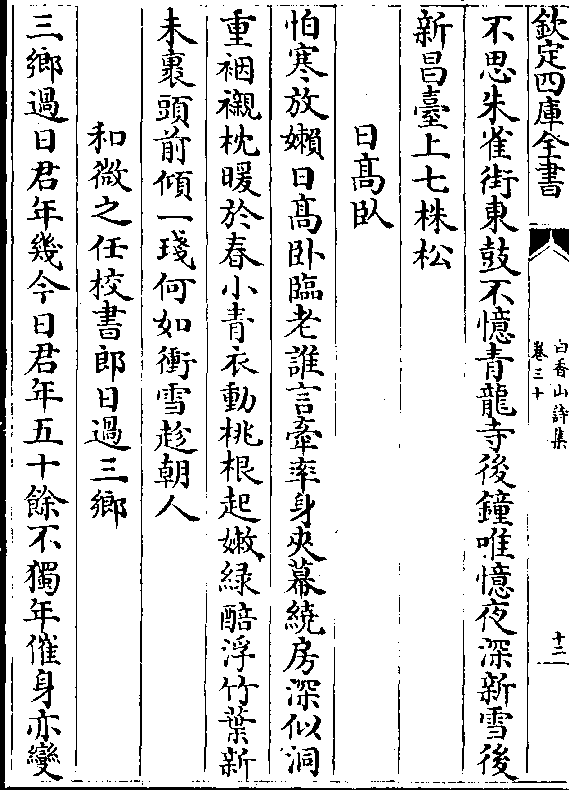 欽定四庫全書
白香山詩集
卷三十
十二
不思朱雀街東鼓不憶青龍寺後鐘唯憶夜深新雪後
新昌臺上七株松
日髙臥
怕寒放嬾日髙卧臨老誰言牽率身夾幕繞房深似洞
重裀襯枕暖於春小青衣動桃根起嫩緑醅浮竹葉新
未裹頭前傾一琖何如衝雪趁朝人
和微之任校書郎日過三鄉
三鄉過日君年幾今日君年五十餘不獨年催身亦變